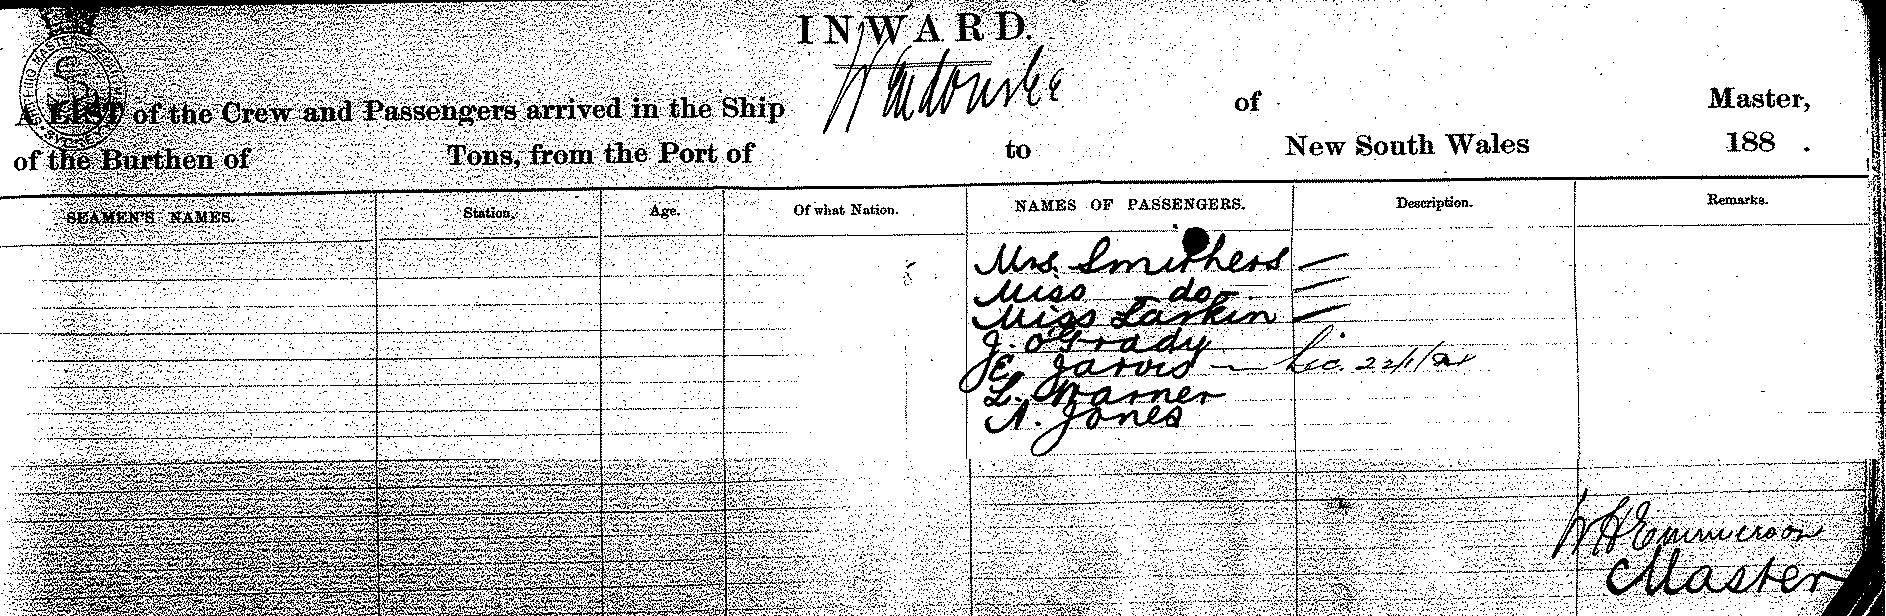 INWARD.
A LIST of the Crew and Passengers arrived in the Ship Wendouree of Master,
of the Burthen of Tons, from the Port of to New South Wales 188 .
SEAMEN'S NAMES. Station. Age. Of what Nation. NAMES OF PASSENGERS. Description. Remarks.
Mrs. Smithers —
Miss do —
Miss Larkin —
J. O'Grady
E. Jarvis —
L. Warner
A. Jones
W H Emmerson
Master